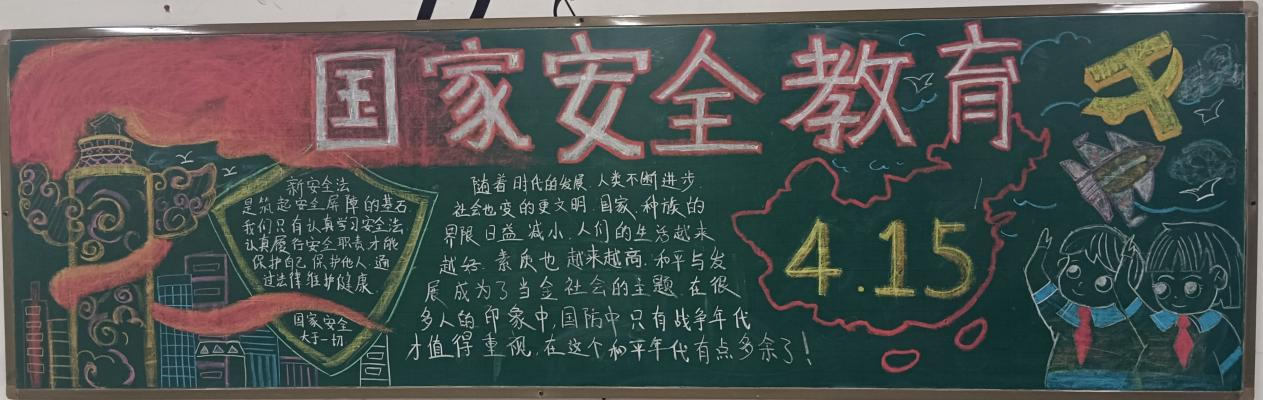 国家安全教育
新安全法
是筑起安全屏障的基石
我们只有认真学习安全法
认真履行安全职责才能
保护自己保护他人通
过法律维护健康
国家安全
大于一切
随着时代的发展.人类不断进步.
社会也变的更文明.国家.种族的
界限日益减小.人们的生活越来
越好.素质也越来越高.和平与发
展成为了当金社会的主题.在很
多人的印象中,国防中只有战争年代
才值得重视.在这个和平年代有点多余了!
4.15